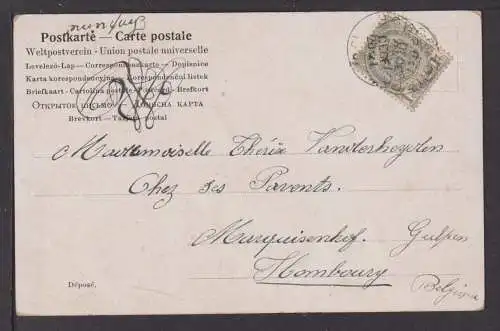 Postkarte — Carte postale
Weltpostverein - Union postale universelle
Levelező-Lap — Correspondenzkarte — Dopisnice
Karta korespondencyjna — Korespondenční lístek
Briefkaart — Cartolina postale — Brefkort
ОТКРЫТОЕ ПИСЬМО КАРТА
Brevkort — postal
Mademoiselle Thérèse Vanderheyden
Chez ses Parents.
Marquisenhof. Gulpen
Hombourg
Belgien
Déposé.